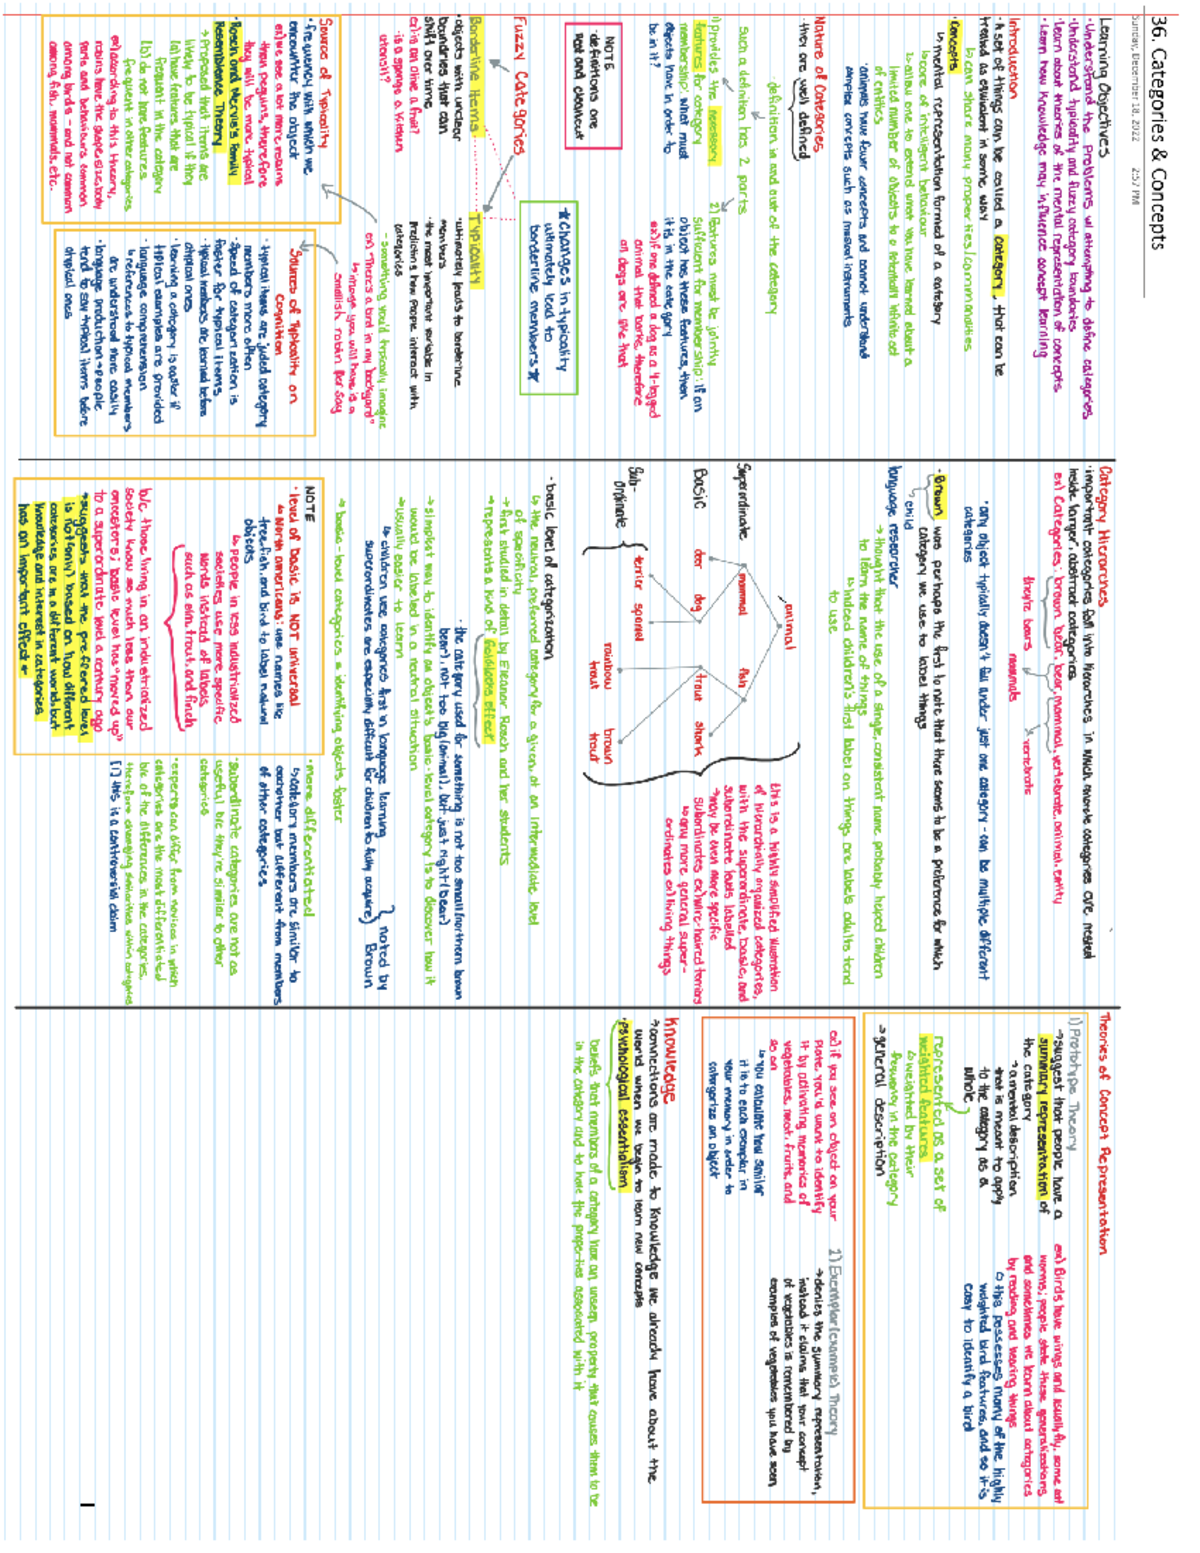 36. Categories & Concepts
Sunday, December 18, 2022    2:57 PM
Learning Objectives
·Understand the problems w/ attempting to define categories
·Understand typicality and fuzzy category boundaries
·Learn about theories of the mental representation of concepts
·Learn how knowledge may influence concept learning
Introduction
·A set of things can be called a category, that can be
treated as equivalent in some way
↳can share many properties/commonalities
·Concepts
↳mental representation formed of a category
↳core of intelligent behaviour
↳allow one to extend what you have learned about a
limited number of objects to a potentially infinite set
of entities
·animals have fewer concepts and cannot understand
complex concepts such as musical instruments
Nature of Categories
·they are well defined
·definition in and out of the category
such a definition has 2 parts
1) Provides the necessary
features for category
membership: what must
objects have in order to
be in it?
2) Features must be jointly
sufficient for membership: if an
object has these features, then
it is in the category
ex) if one defined a dog as a 4-legged
animal that barks, therefore
all dogs are like that
NOTE
·definitions are
not and cleancut
Fuzzy Categories
★Changes in typicality
ultimately lead to
borderline members★
Borderline Items
·objects with unclear
boundries that can
shift over time
ex) is an olive a fruit?
·is a sponge a kitchen
utensil?
Typicality
·ultimately leads to borderline
members
·the most important variable in
predicting how people interact with
categories
-something you'd typically imagine
ex) "There's a bird in my backyard"
↳image you will have is a
smallish robin per say
Source of Typicality
·frequency with when we
encounter the object
ex) we see a lot more robins
than penguins, therefore
they will be more typical
·Rosch and Mervis's Family
Resemblance Theory
→Proposed that items are
likely to be typical if they
(a) have features that are
frequent in the category
(b) do not have features
frequent in other categories
ex) according to this theory,
robins have the shape, size, body
parts and behaviours common
among birds - and not common
among fish, mammals, etc.
Sources of Typicality on
Cognition
·typical items are judged category
members more often
·speed of categorization is
faster for typical items
·typical members are learned before
atypical ones
·learning a category is easier if
typical examples are provided
·language comprehension
↳references to typical members
are understood more easily
·language production→people
tend to say typical items before
atypical ones
Category Hierarchies
·important categories fall into hierarchies in which concrete categories are nested
inside larger, abstract categories
ex) Categories: brown bear, bear, mammal, vertebrate, animal, entity
they're bears    mammals    vertebrate
·any object typically doesn't fall under just one category - can be multiple different
categories
·Brown was perhaps the first to note that there seems to be a preference for which
category we use to label things
child
language researcher
→thought that the use of a single, consistent name probably helped children
to learn the name of things
↳indeed children's first label on things are labels adults tend
to use
animal
Superordinate    mammal    fish
Basic    deer    dog    trout    shark
Sub-
ordinate    terrier    spaniel    rainbow
trout    brown
trout
this is a highly simplified illustration
of hierarchially organized categories,
with the superordinate, basic, and
subordinate levels labelled
→may be even more specific
subordinates ex) wire-haired terriers
↳any more general super-
ordinates ex) living things
·basic level of categorization
↳the neutral, preferred category for a given, at an intermediate level
of specificity
→first studied in detail by Eleanor Rosch and her students
→represents a kind of Goldilocks effect
·the category used for something is not too small (northern brown
bear), not too big (animal), but just right (bear)
→simplest way to identify an object's basic-level category is to discover how it
would be labeled in a neutral situation
→usually easier to learn
↳children use categories first in language learning
superordinates are especially difficult for children to fully acquire
noted by
Brown
→basic-level categories = identifying objects faster
NOTE
·level of basic is NOT universal
↳North americans: use names like
tree, fish, and bird to label natural
objects
↳people in less industrialized
societies use more specific
words instead of labels
such as elm, trout, and finch
b/c those living in an industrialized
society know so much less than our
ancestors; basic level has "moved up"
to a superordinate level a century ago
→suggests that the preffered level
is not (only) based on how different
categories are in a different world, but
knowledge and interest in categories
has an important effect
·more differentiated
↳category members are similar to
eachother but different from members
of other categories
·Subordinate categories are not as
useful b/c they're similar to other
categories
·experts can differ from novices in which
categories are the most differentiated
b/c of the differences in the categories,
therefore changing similarities within categories
[!] this is a controversial claim
Theories of Concept Representation
1) Prototype Theory
→suggest that people have a
summary representation of
the category
→a mental description
that is meant to apply
to the category as a
whole
represented as a set of
weighted features
↳weighted by their
frequency in the category
→general description
ex) Birds have wings and usually fly, some eat
worms; people state these generalizations
and sometimes we learn about categories
by reading and hearing things
↳this possesses many of the highly
weighted bird features, and so it is
easy to identify a bird
2) Exemplar (example) Theory
→denies the summary representation,
instead it claims that your concept
of vegetables is remembered by
examples of vegetables you have seen
ex) if you see an object on your
plate, you'd want to identify
it by activating memories of
vegetables, meat, fruits, and
so on
↳you calculate how similar
it is to each exemplar in
your memory in order to
categorize an object
Knowledge
→connections are made to knowledge we already have about the
world when we begin to learn new concepts
·psychological essentialism
beliefs that members of a category have an unseen property that causes them to be
in the category and to have the properties associated with it